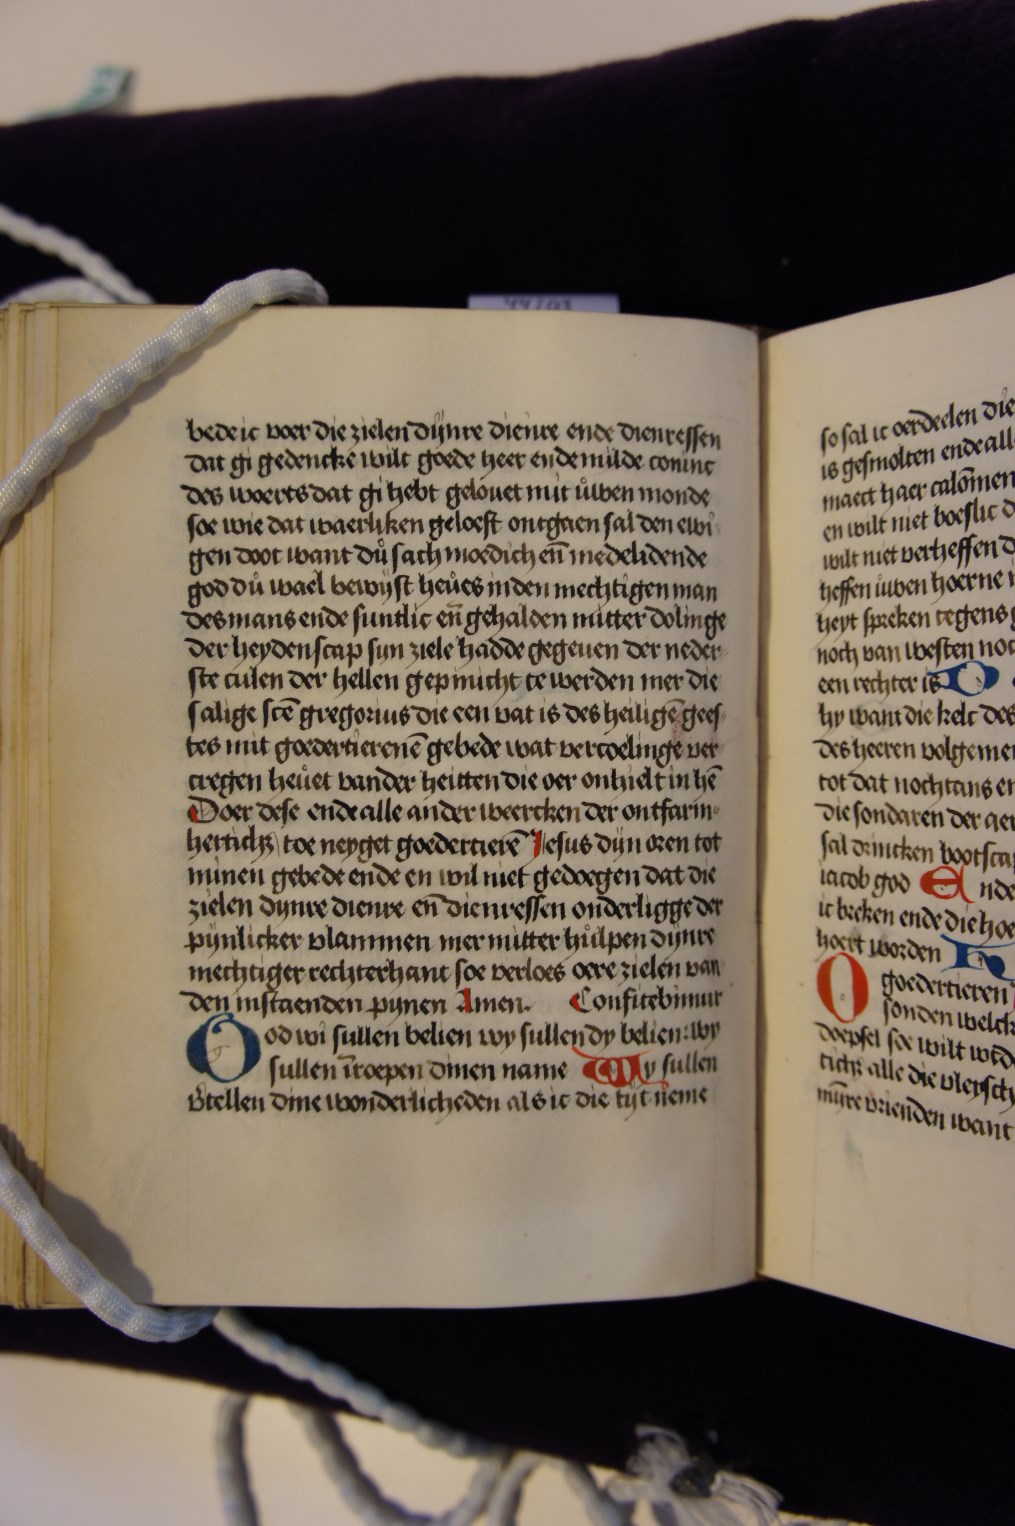 bede ic voer die zielen dijnre dienre ende dienressen
dat gi gedencke wilt goede heer ende milde coninc
des woerts dat gi hebt gelouet mit uͦwen monde
soe wie dat waerliken geloeft ontgaen sal den ewi
gen doot want duͦ sach moedich en̄ medelidende
god duͦ wael bewijst heues inden mechtigen man
des mans ende suntlic en̄ gehalden mitter dolinge
der heydenscap sijn ziele hadde gegeuen der neder-
ste culen der hellen gepinicht te werden mer die
salige scē gregorius die een vat is des heiligē gees-
tes mit goedertierenē gebede wat vercoelinge ver
cregen heuͦet vander heitten die oer onhielt in hē
Doer dese ende alle ander weercken der ontfarm-
hertich; toe neyget goedertierē Jesus dijn oren tot
minen gebede ende en wil niet gedoegen dat die
zielen dynre dienre en̄ dienressen onderligge der
pijnlicker vlammen mer mitter huͦlpen dijnre
mechtiger rechterhant soe verloes oere zielen van
den instaenden pynen Amen. Confitebimur
God wi sullen belien wy sullen dy belien: wy
sullen īroepen dinen name Wy sullen
v̄tellen dine wonderlicheden als ic die tijt neme
so sal ic oerdeelen die
is gesmolten ende all
maect haer calōmen
en wilt niet boeslic d
wilt niet verheffen d
heffen uͦwen hoerne
heyt spreken tegens g
noch van westen noc
een rechter is D
hy want die kelc des
des heeren vol gemen
tot dat nochtans en
die sondaren der aer
sal drincken bootscap
iacob god Ende
ic breken ende die hoe
hoert worden R
O goedertieren
sonden welck
doepsel soe wilt
ticht alle die vleysch
mīre vrienden want